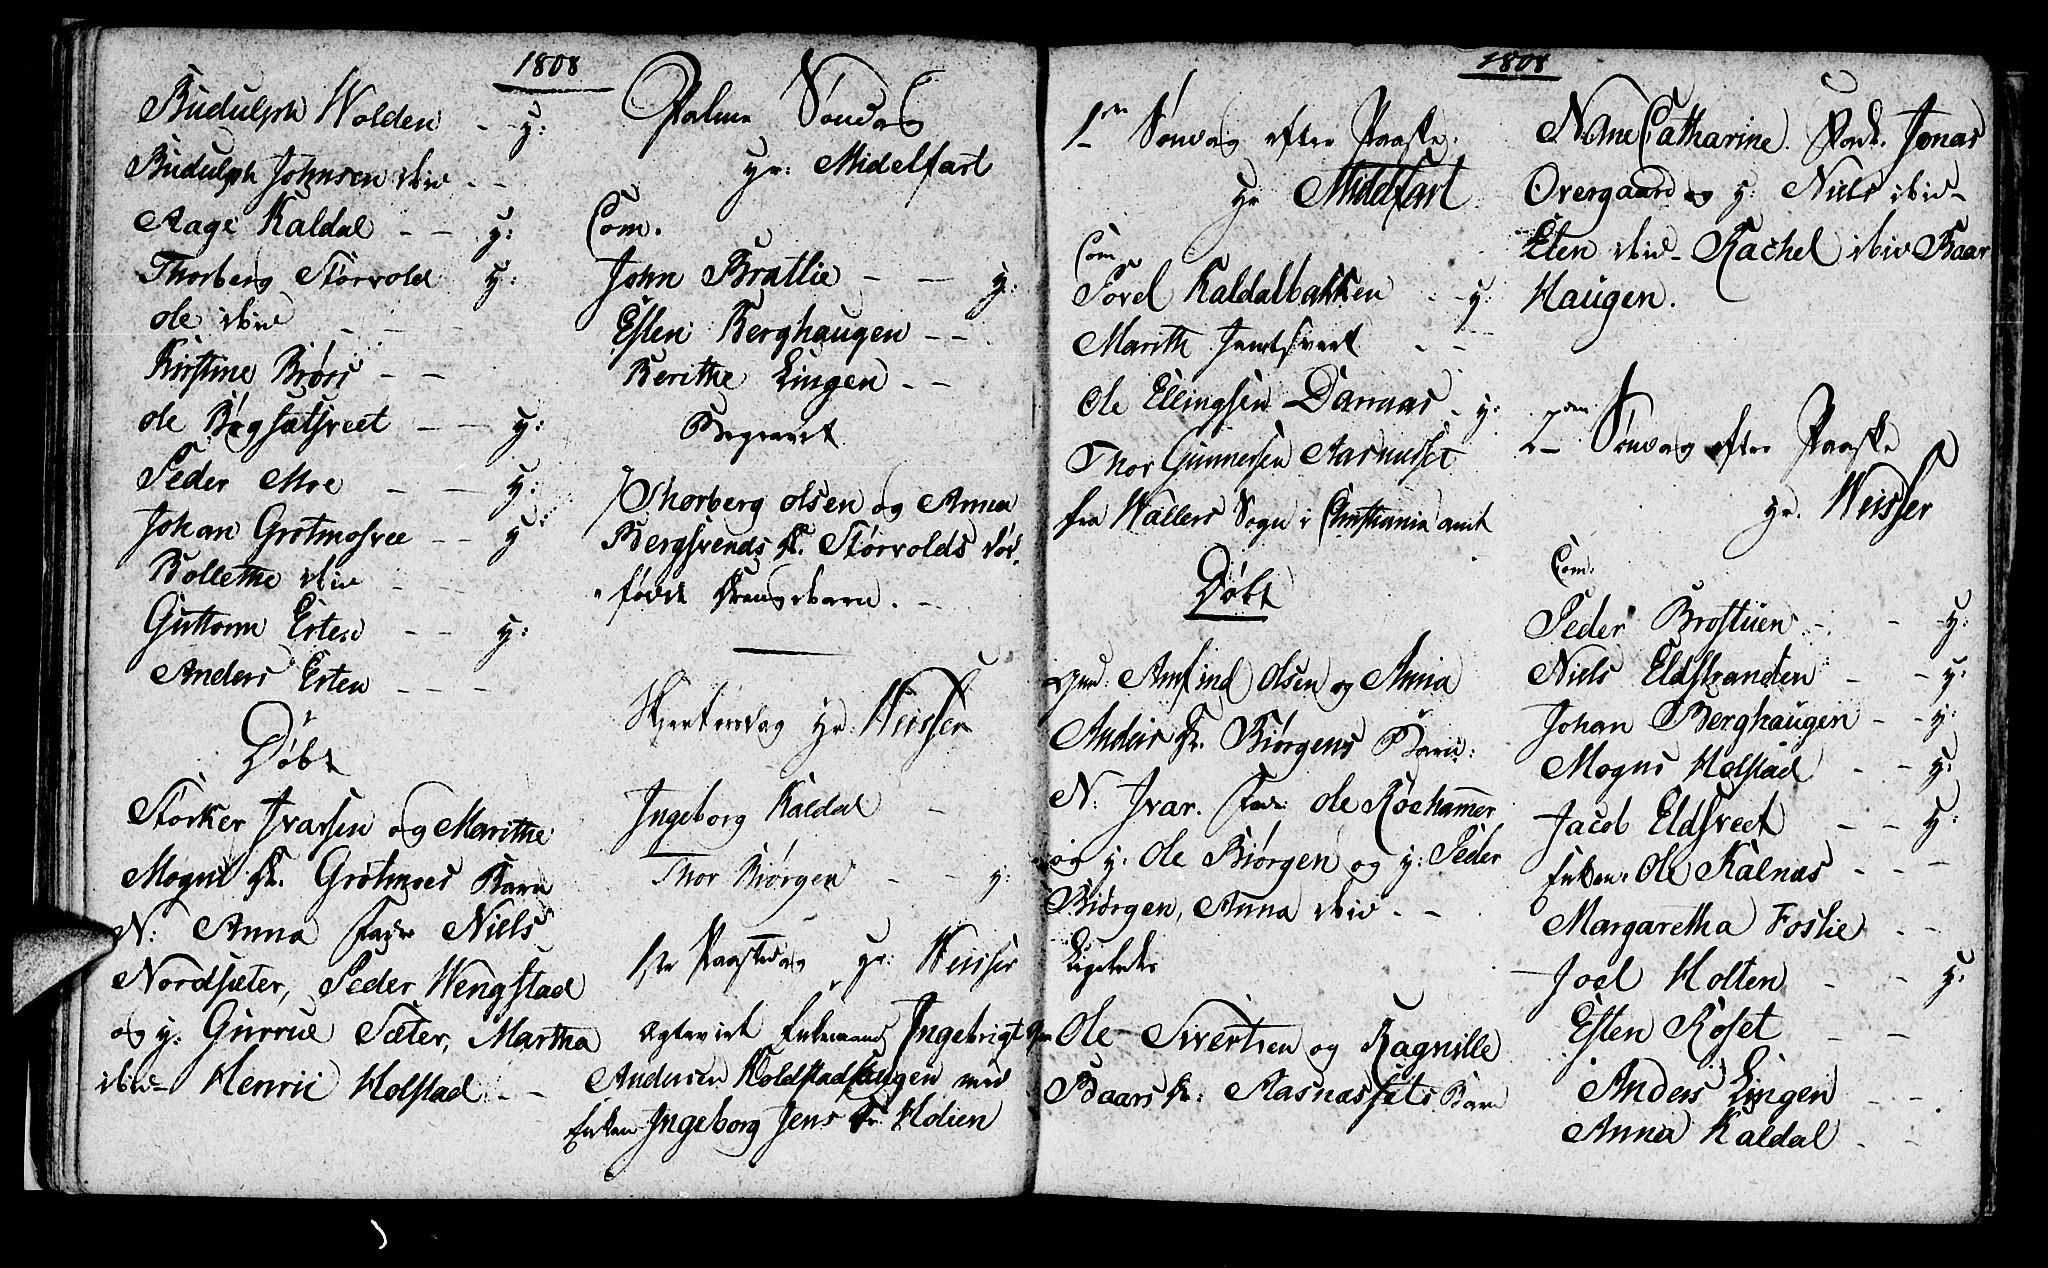 1808
Budulph Wolden - - y:
Budulph Johnsen ibid - -
Aage Kaldal - - y:
Thorberg Størvold y:
Ole ibid - -
Kirstine Brøss - -
Ole Bøgsætsveet - - y:
Peder Moe - - y:
Johan Grotmosvee - - y
Bollethe ibid - -
Guttorm Esten - - y:
Anders Esten - - -
Døbt
Størker Ivarsen og Marithe
Mogns D. Grøtmoes Barn
N: Anna Fadr Niels
Nordsæter, Peder Wengstad
og y: Gurrue Sæter, Martha
ibid- Henric Holstad - -
Palme Søndag
Hr: Midelfart
Com.
John Brattlie - - y:
Esten Berghaugen - -
Berithe Lingen - -
Begravet
Thorberg Olsen og Anna
Bergsvends D. Størvolds død-
fødde Drengebarn. -
Skiertorsdag Hr: Weisser
Ingeborg Kaldal -
Thor Biørgen - - y:
1ste Paaskedag Hr: Weisser
Egteviet Enkemand Ingebrigt
Andersen Koldstadhaugen med
Enken Ingeborg Jens D. Holien
1808
1ste Søndag efter Paaske.
Hr Midelfart
Com
Tord Kaldalbakken - - y:
Marith Jemtsveet - -
Ole Ellingsen Darnas - y:
Thor Gunnersen Aarnusset
fra Wallers Sogn i Christiania amt
Døbt
Amfind Olsen og Anna
Anders D. Biørgens Barn:
N: Ivar. Fadr: Ole Røehammer
og y: Ole Biørgen og y: Peder
Biørgen, Anna ibid - -
Ligeledes
Ole Sivertsen og Ragnille
Baars D: Aasnassets Barn
N. Ane Catharine. Fadr. Jonas
Overgaard og y: Niels ibid-
Esten ibid- Rachel ibid Baar
Haugen.
2den Søndag efter Paaske
Hr. Weisser
Com.
Peder Brostuen - - y:
Niels Eldstranden - - y:
Johan Berghaugen - - y:
Mogns Holstad - - y:
Jacob Eldsveet - - y:
Enken. Ole Kalnæs - -
Margaretha Foslie - -
Joel Holten - - y:
Esten Røset - -
Anders Lingen - -
Anna Kaldal - -